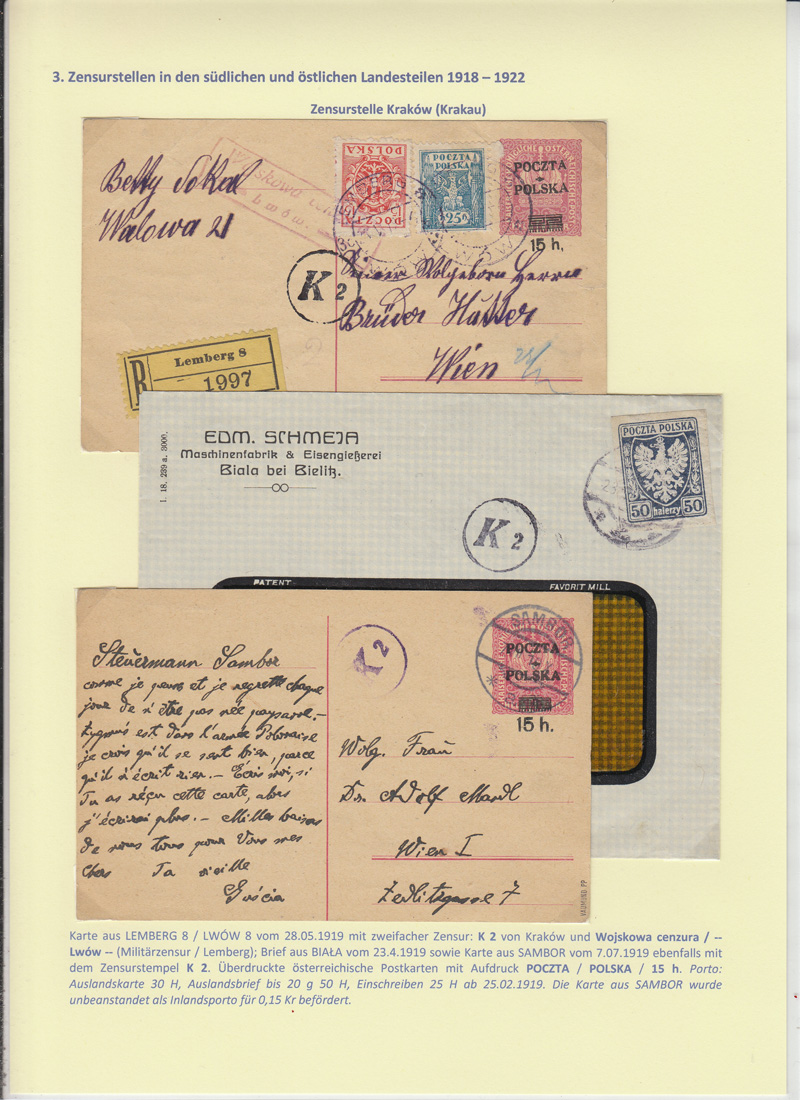 3. Zensurstellen in den südlichen und östlichen Landesteilen 1918 – 1922
Zensurstelle Kraków (Krakau)
Betty Sokal
Walowa 21
Wojskowa
Lwów.
POLSKA
POCZTA
POCZTA
POLSKA
25
POCZTA
POLSKA
15 h.
K 2
Seiner Wolgeborn Herrn
Brüder Hutter
Wien
R
Lemberg 8
1997
1. 18. 239 a. 3000.
EDM. SCHMEJA
Maschinenfabrik & Eisengießerei
Biala bei Bielitz.
POCZTA POLSKA
50 halerzy 50
K 2
PATENT
FAVORIT MILL
Steuermann Sambor
comme je peux et je regrette chaque
jour de n'être pas née paysanne.–
est dans l'armée Polonaise
je crois qu'il se sent bien, parce
qu'il n'écrit rien.– Écris moi, si
Tu as reçu cette carte, alors
j'écrirai plus. – Milles baisers
de nous tous pour Vous mes
chers Ta vieille
K 2
SAMBOR
POCZTA
POLSKA
15 h.
Wolg. Frau
Dr. Adolf Mandl
Wien I
Zedlitzgasse 7
Karte aus LEMBERG 8 / LWÓW 8 vom 28.05.1919 mit zweifacher Zensur: K 2 von Kraków und Wojskowa cenzura / --
Lwów -- (Militärzensur / Lemberg); Brief aus BIAŁA vom 23.4.1919 sowie Karte aus SAMBOR vom 7.07.1919 ebenfalls mit
dem Zensurstempel K 2. Überdruckte österreichische Postkarten mit Aufdruck POCZTA / POLSKA / 15 h. Porto:
Auslandskarte 30 H, Auslandsbrief bis 20 g 50 H, Einschreiben 25 H ab 25.02.1919. Die Karte aus SAMBOR wurde
unbeanstandet als Inlandsporto für 0,15 Kr befördert.